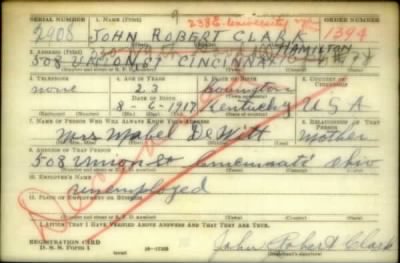 SERIAL NUMBER 1. NAME (Print) ORDER NUMBER
238 E. University
2908 JOHN ROBERT CLARK 1394
2. ADDRESS (Print) HAMILTON
508 UNION ST CINCINNATI
3. TELEPHONE 4. AGE IN YEARS 5. PLACE OF BIRTH 6. COUNTRY OF CITIZENSHIP
none 23 Covington
DATE OF BIRTH
8-6-1917 Kentucky U S A
7. NAME OF PERSON WHO WILL ALWAYS KNOW YOUR ADDRESS 8. RELATIONSHIP OF THAT PERSON
Mrs Mabel DeWitt Mother
9. ADDRESS OF THAT PERSON
508 Union St Cincinnati Ohio
10. EMPLOYER'S NAME
unemployed
11. PLACE OF EMPLOYMENT OR BUSINESS
I AFFIRM THAT I HAVE VERIFIED ABOVE ANSWERS AND THAT THEY ARE TRUE.
REGISTRATION CARD
D. S. S. Form 1
John Robert Clark